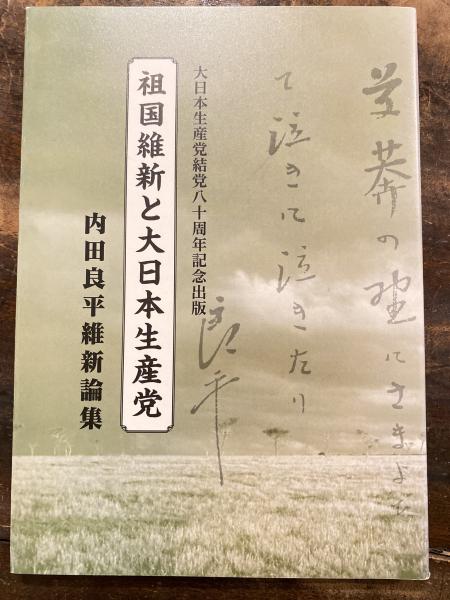 草莽の野にさまよひ
て泣きに泣きたり
良平
大日本生産党結党八十周年記念出版
祖国維新と大日本生産党
内田良平維新論集